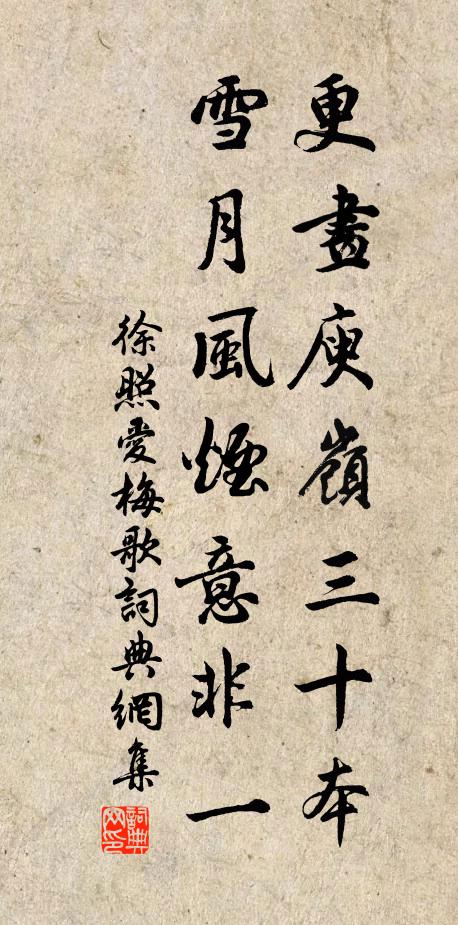 更畫庾嶺三十本
雪月風煙意非一
徐照愛梅歌詞典網集
詞典网印